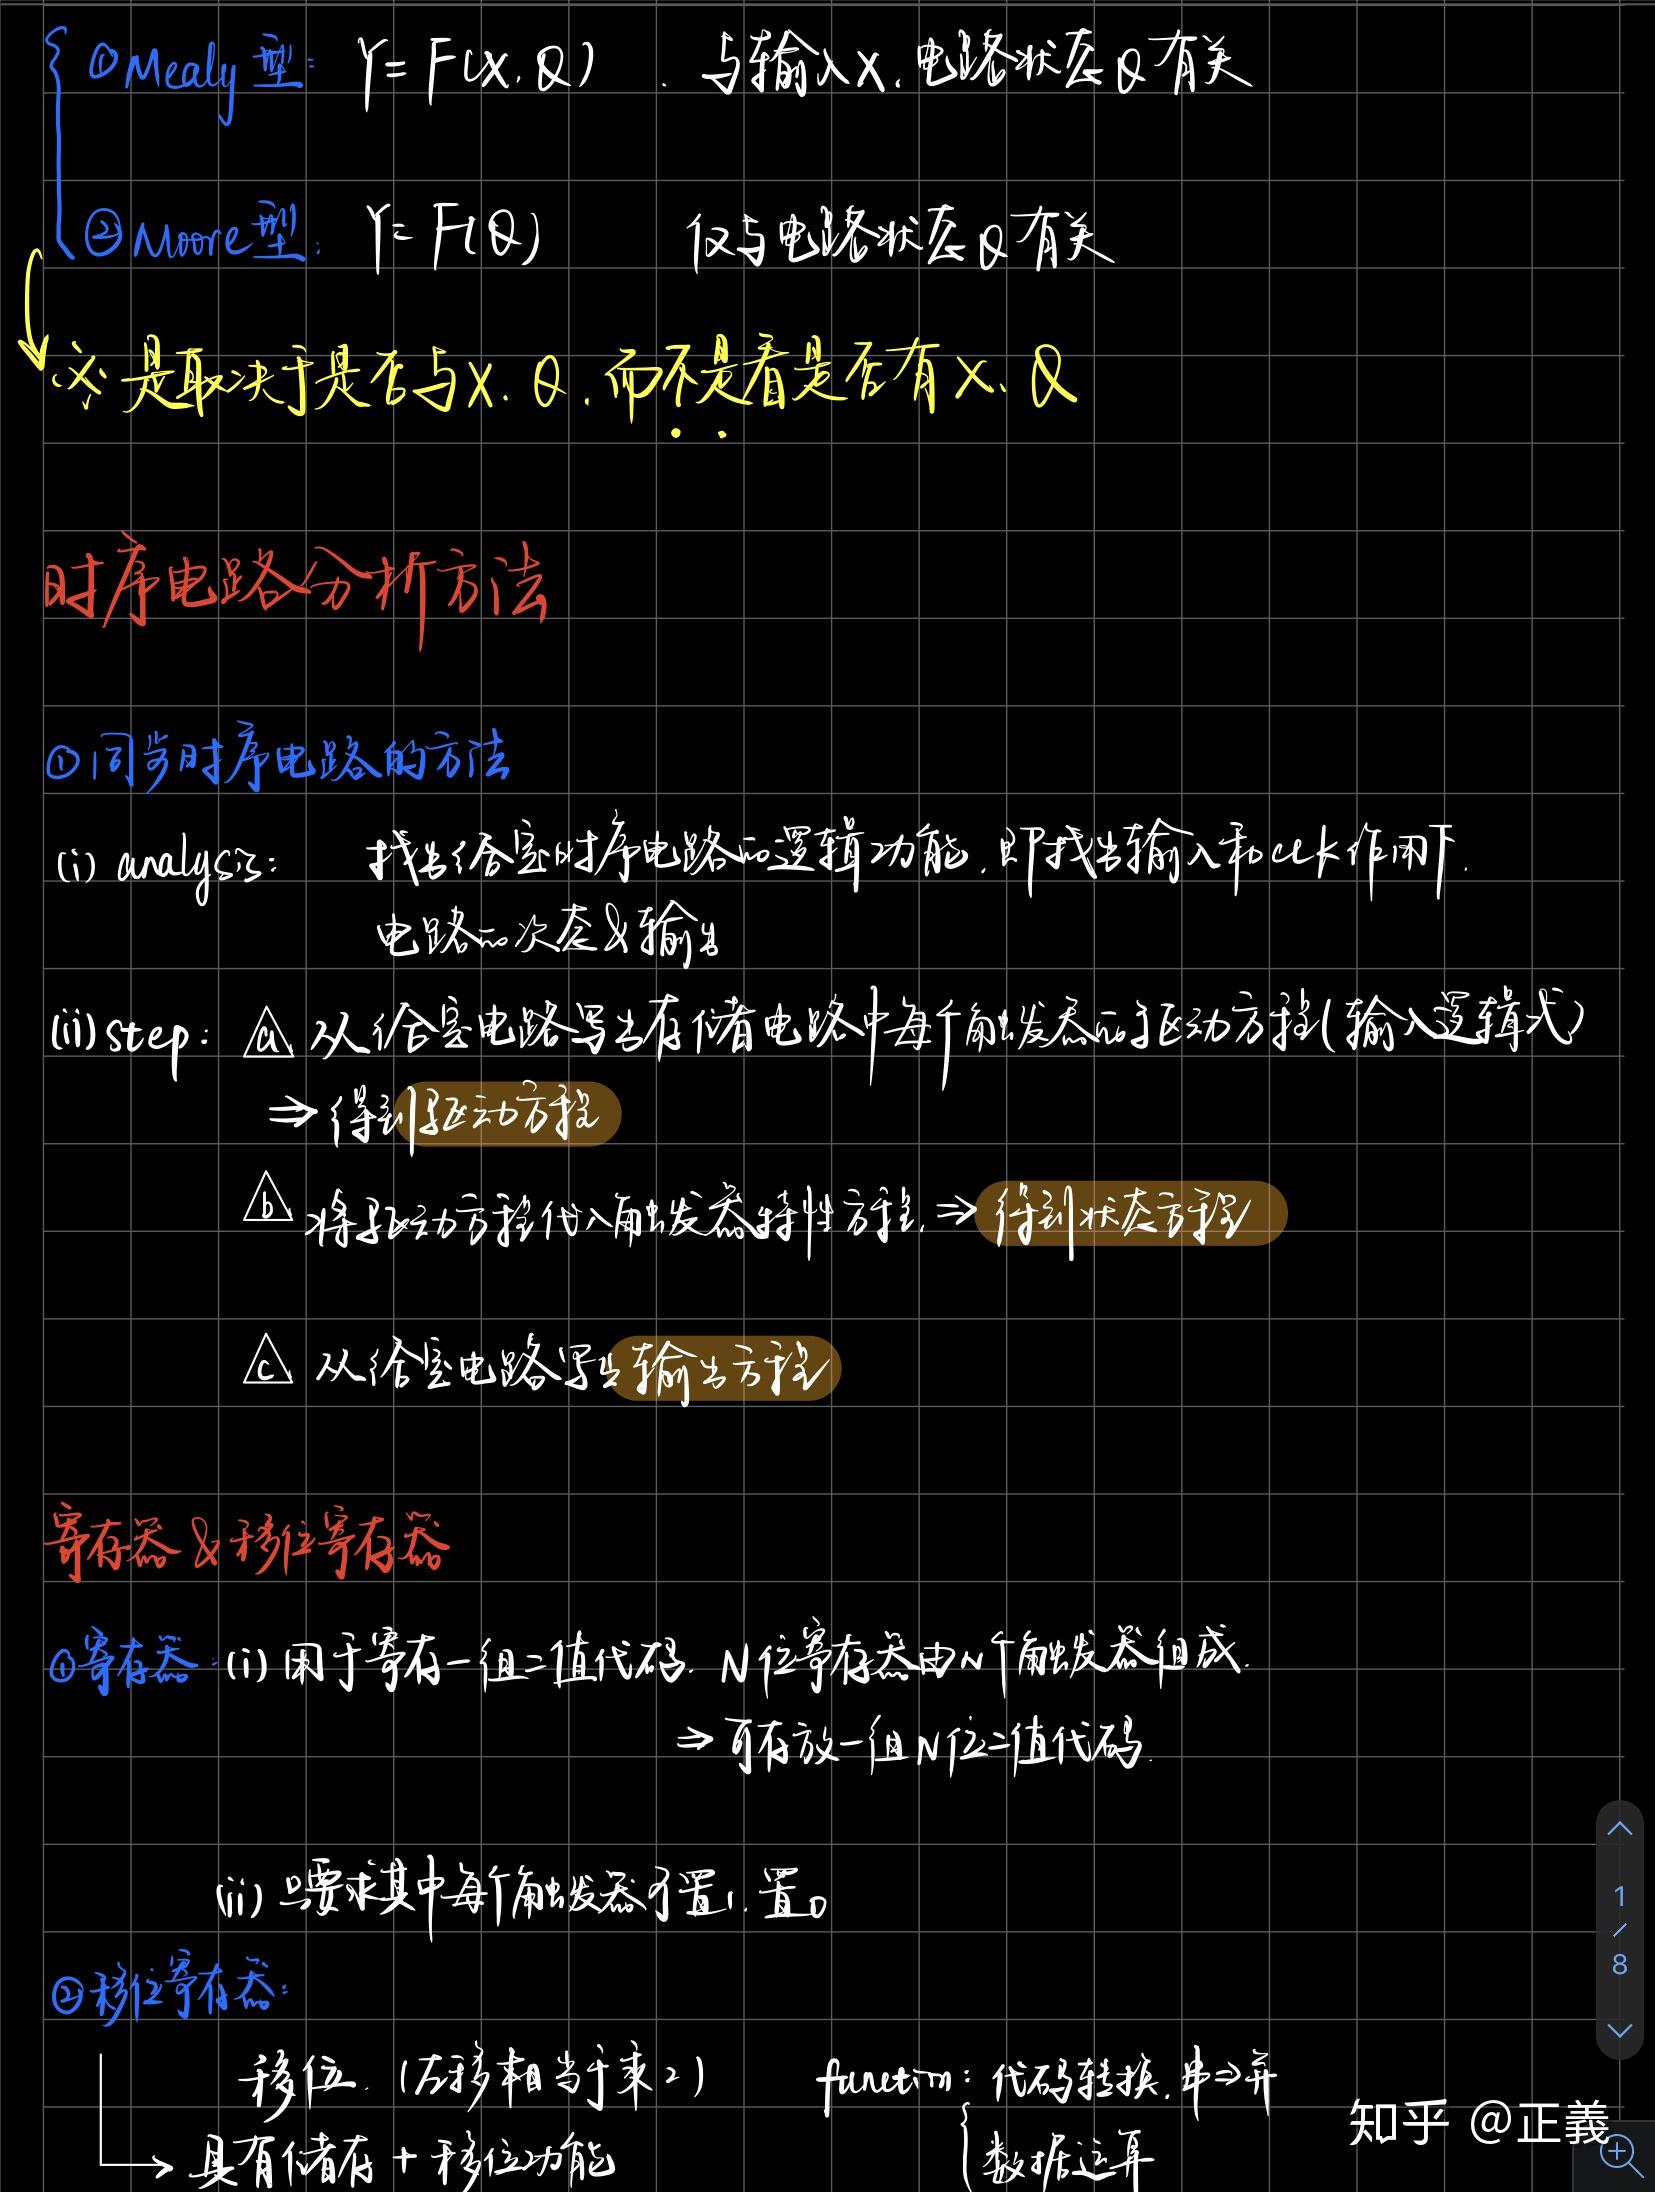 ①Mealy型： Y=F(X,Q)．与输入X、电路状态Q有关
②Moore型： Y=F(Q) 仅与电路状态Q有关
※是取决于是否与X、Q，而不是看是否有X、Q
时序电路分析方法
①同步时序电路的方法
(i) analysis： 找出给定时序电路的逻辑功能，即找出输入和CLK作用下．
电路的次态&输出
(ii) step： a 从给定电路写出存储电路中每个触发器的驱动方程(输入逻辑式)
⇒得到驱动方程
b 将驱动方程代入触发器特性方程，⇒得到状态方程
c 从给定电路写出输出方程
寄存器&移位寄存器
①寄存器：(i) 用于寄存一组二值代码．N位寄存器由N个触发器组成．
⇒可存放一组N位二值代码．
(ii) 只要求其中每个触发器可置1．置0
②移位寄存器：
移位．(左移相当于乘2) function：代码转换，串⇒并
→具有储存+移位功能 数据运算
1
/
8
知乎 @正義